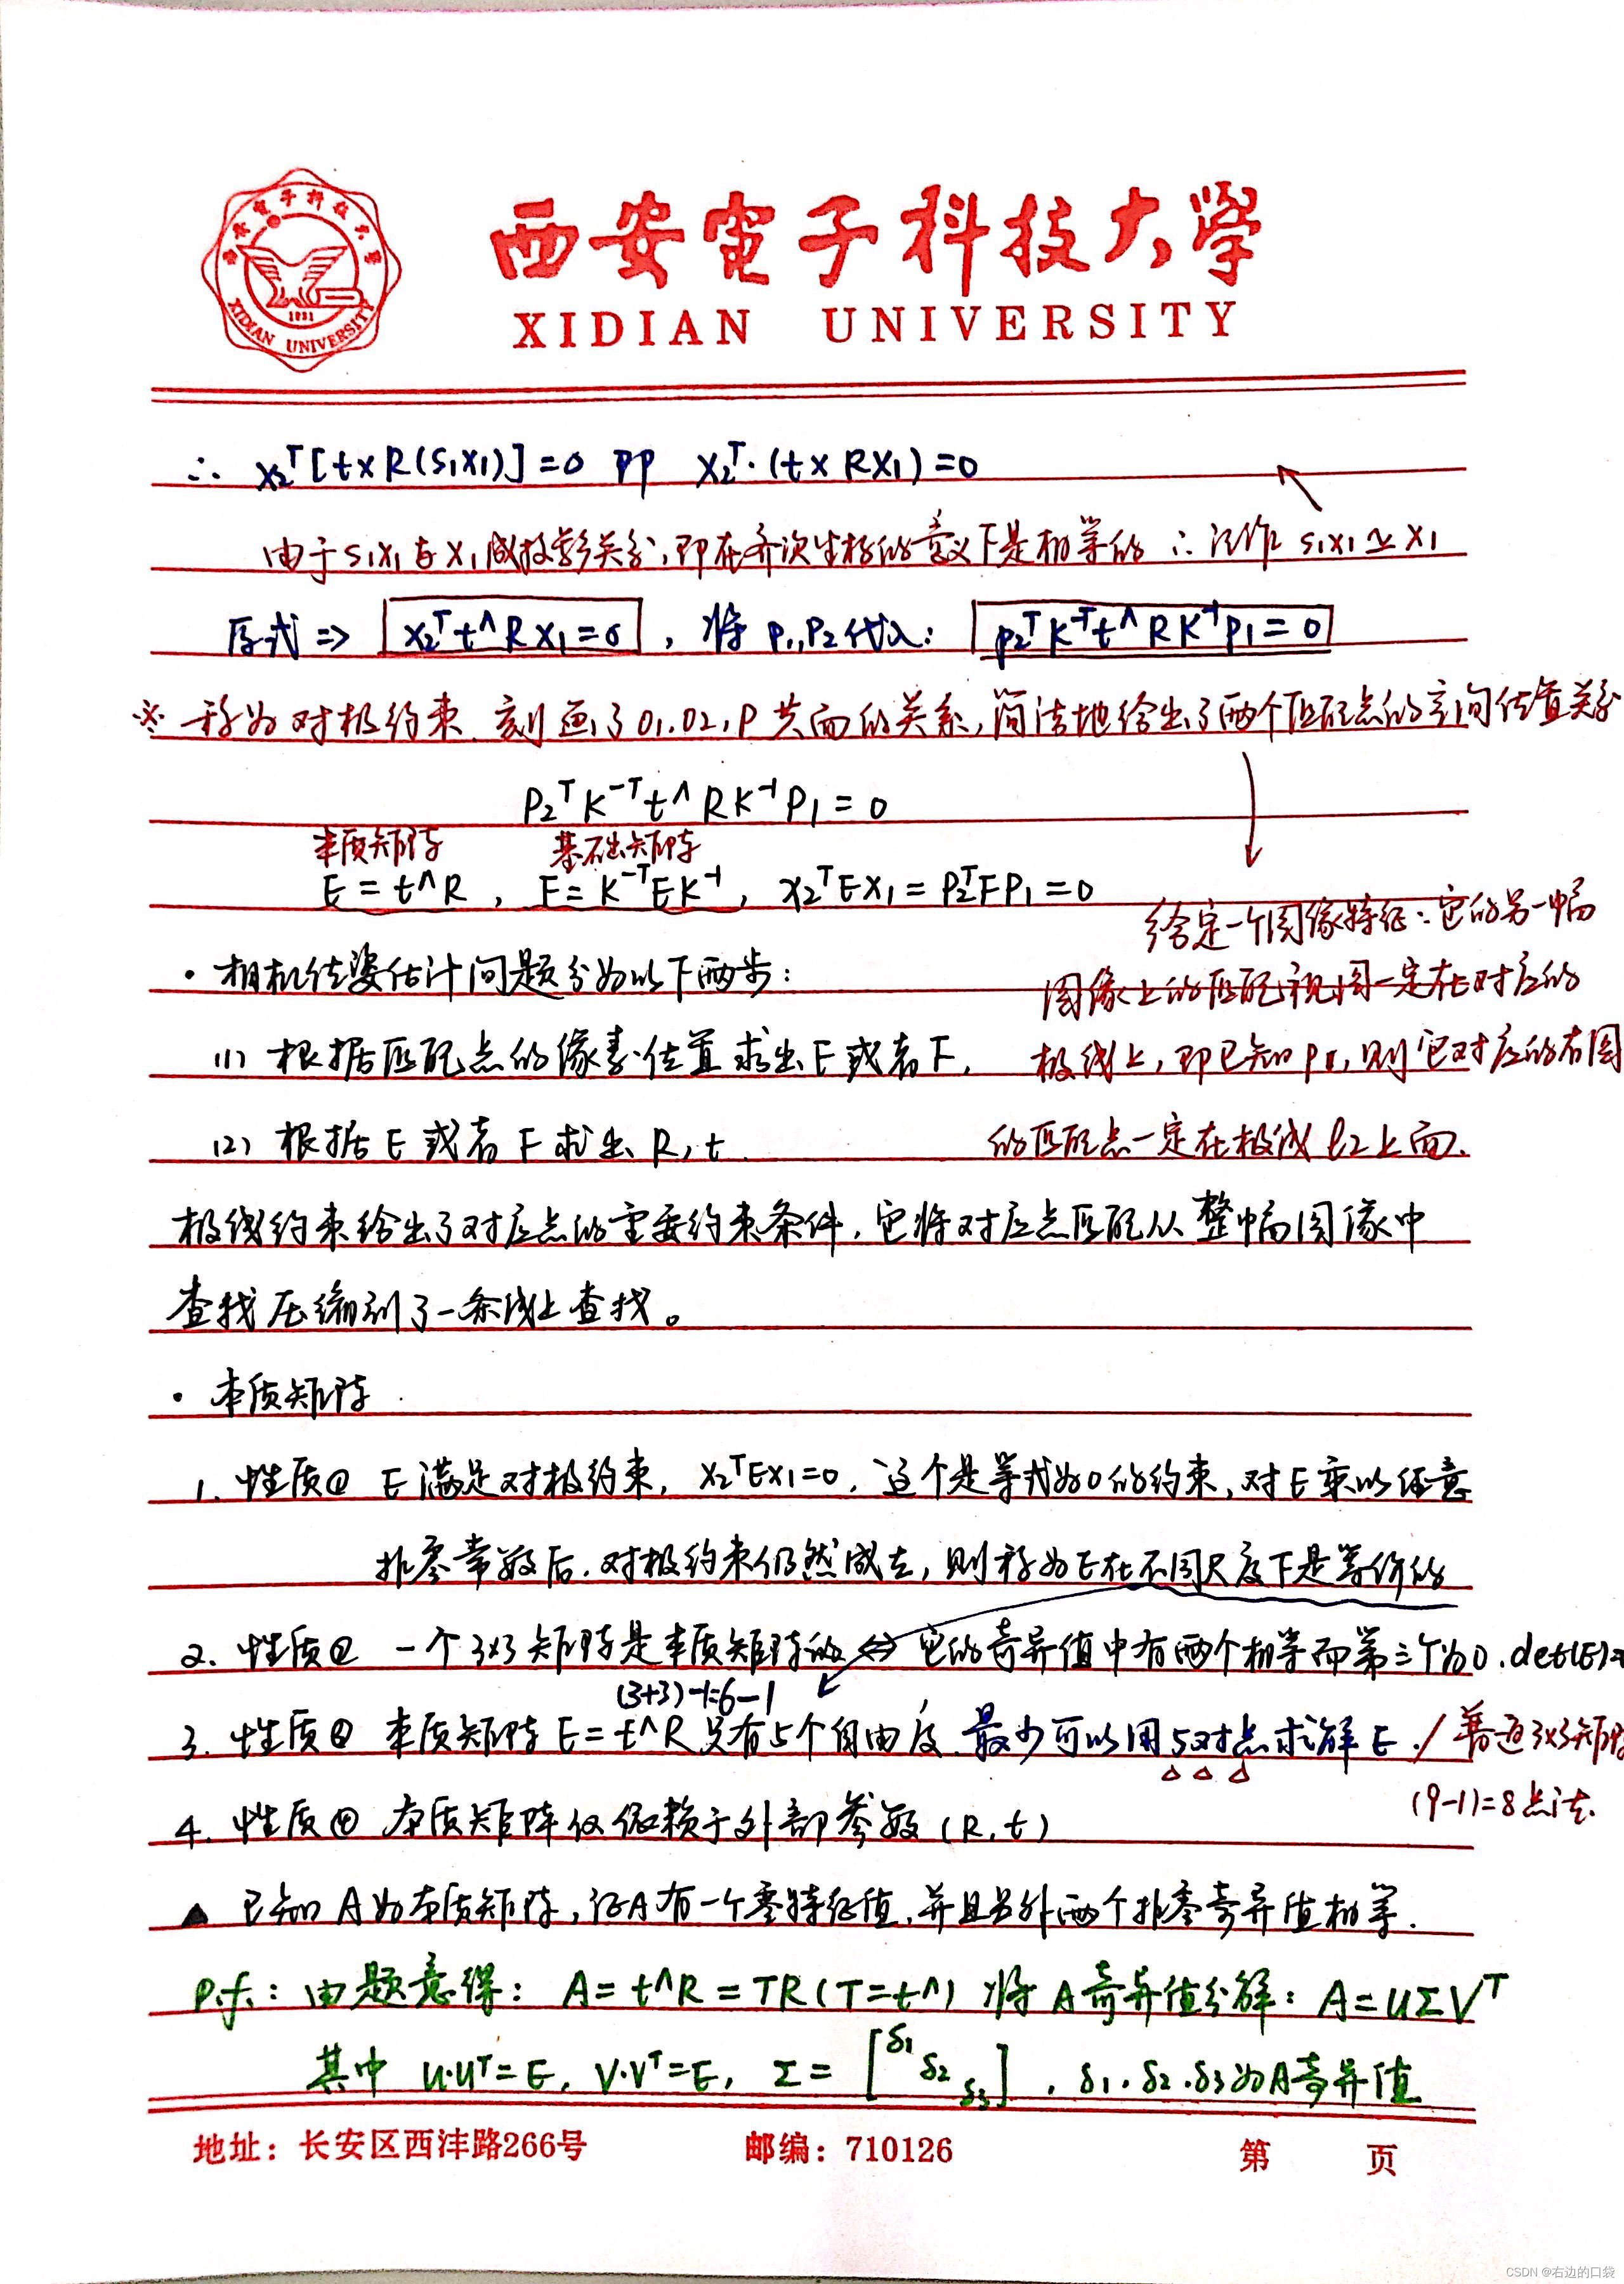 西安電子科技大學
XIDIAN UNIVERSITY
1931
XIDIAN UNIVERSITY
∴ x₂ᵀ[t×R(s₁x₁)]=0 即 x₂ᵀ·(t×Rx₁)=0
由于s₁x₁与x₁成投影关系,即在齐次坐标的意义下是相等的 ∴记作 s₁x₁≃x₁
原式⇒ x₂ᵀt^Rx₁=0 , 将 p₁,p₂代入: p₂ᵀK⁻ᵀt^RK⁻¹p₁=0
※ 称为对极约束 刻画了O1.O2,P共面的关系,简洁地给出了两个匹配点的空间位置关系
P₂ᵀK⁻ᵀt^RK⁻¹P₁=0
本质矩阵 基础矩阵
E=t^R , F=K⁻ᵀEK⁻¹, x₂ᵀEx₁=P₂ᵀFP₁=0
给定一个图像特征∵它的另一幅
图像上的匹配视图一定在对应的
极线上,即已知p1,则它对应的右图
的匹配点一定在极线l2上面.
· 相机位姿估计问题分为以下两步:
(1) 根据匹配点的像素位置求出E或者F.
(2) 根据E或者F求出R,t
极线约束给出了对应点的重要约束条件,它将对应点匹配从整幅图像中
查找压缩到了一条线上查找。
· 本质矩阵
1. 性质① E满足对极约束, x₂ᵀEx₁=0, 这个是等式为0的约束,对E乘以任意
非零常数后.对极约束仍然成立,则称为E在不同尺度下是等价的
2. 性质② 一个3×3矩阵是本质矩阵的⇔它的奇异值中有两个相等而第三个为0.det(E)=
(3+3)-1=6-1
3. 性质③ 本质矩阵E=t^R只有5个自由度.最少可以用5对点求解E. / 普通3×3矩阵
(9-1)=8点法.
4. 性质④ 本质矩阵仅依赖于外部参数(R,t)
▲ 已知A为本质矩阵,证A有一个零特征值,并且另外两个非零奇异值相等.
p.f.: 由题意得: A=t^R=TR(T=t^) 将A奇异值分解: A=UΣVᵀ
其中 U·Uᵀ=E, V·Vᵀ=E, Σ=[δ1 δ2 δ3], δ1.δ2.δ3为A奇异值
地址:长安区西沣路266号 邮编:710126 第 页
CSDN @右边的口袋